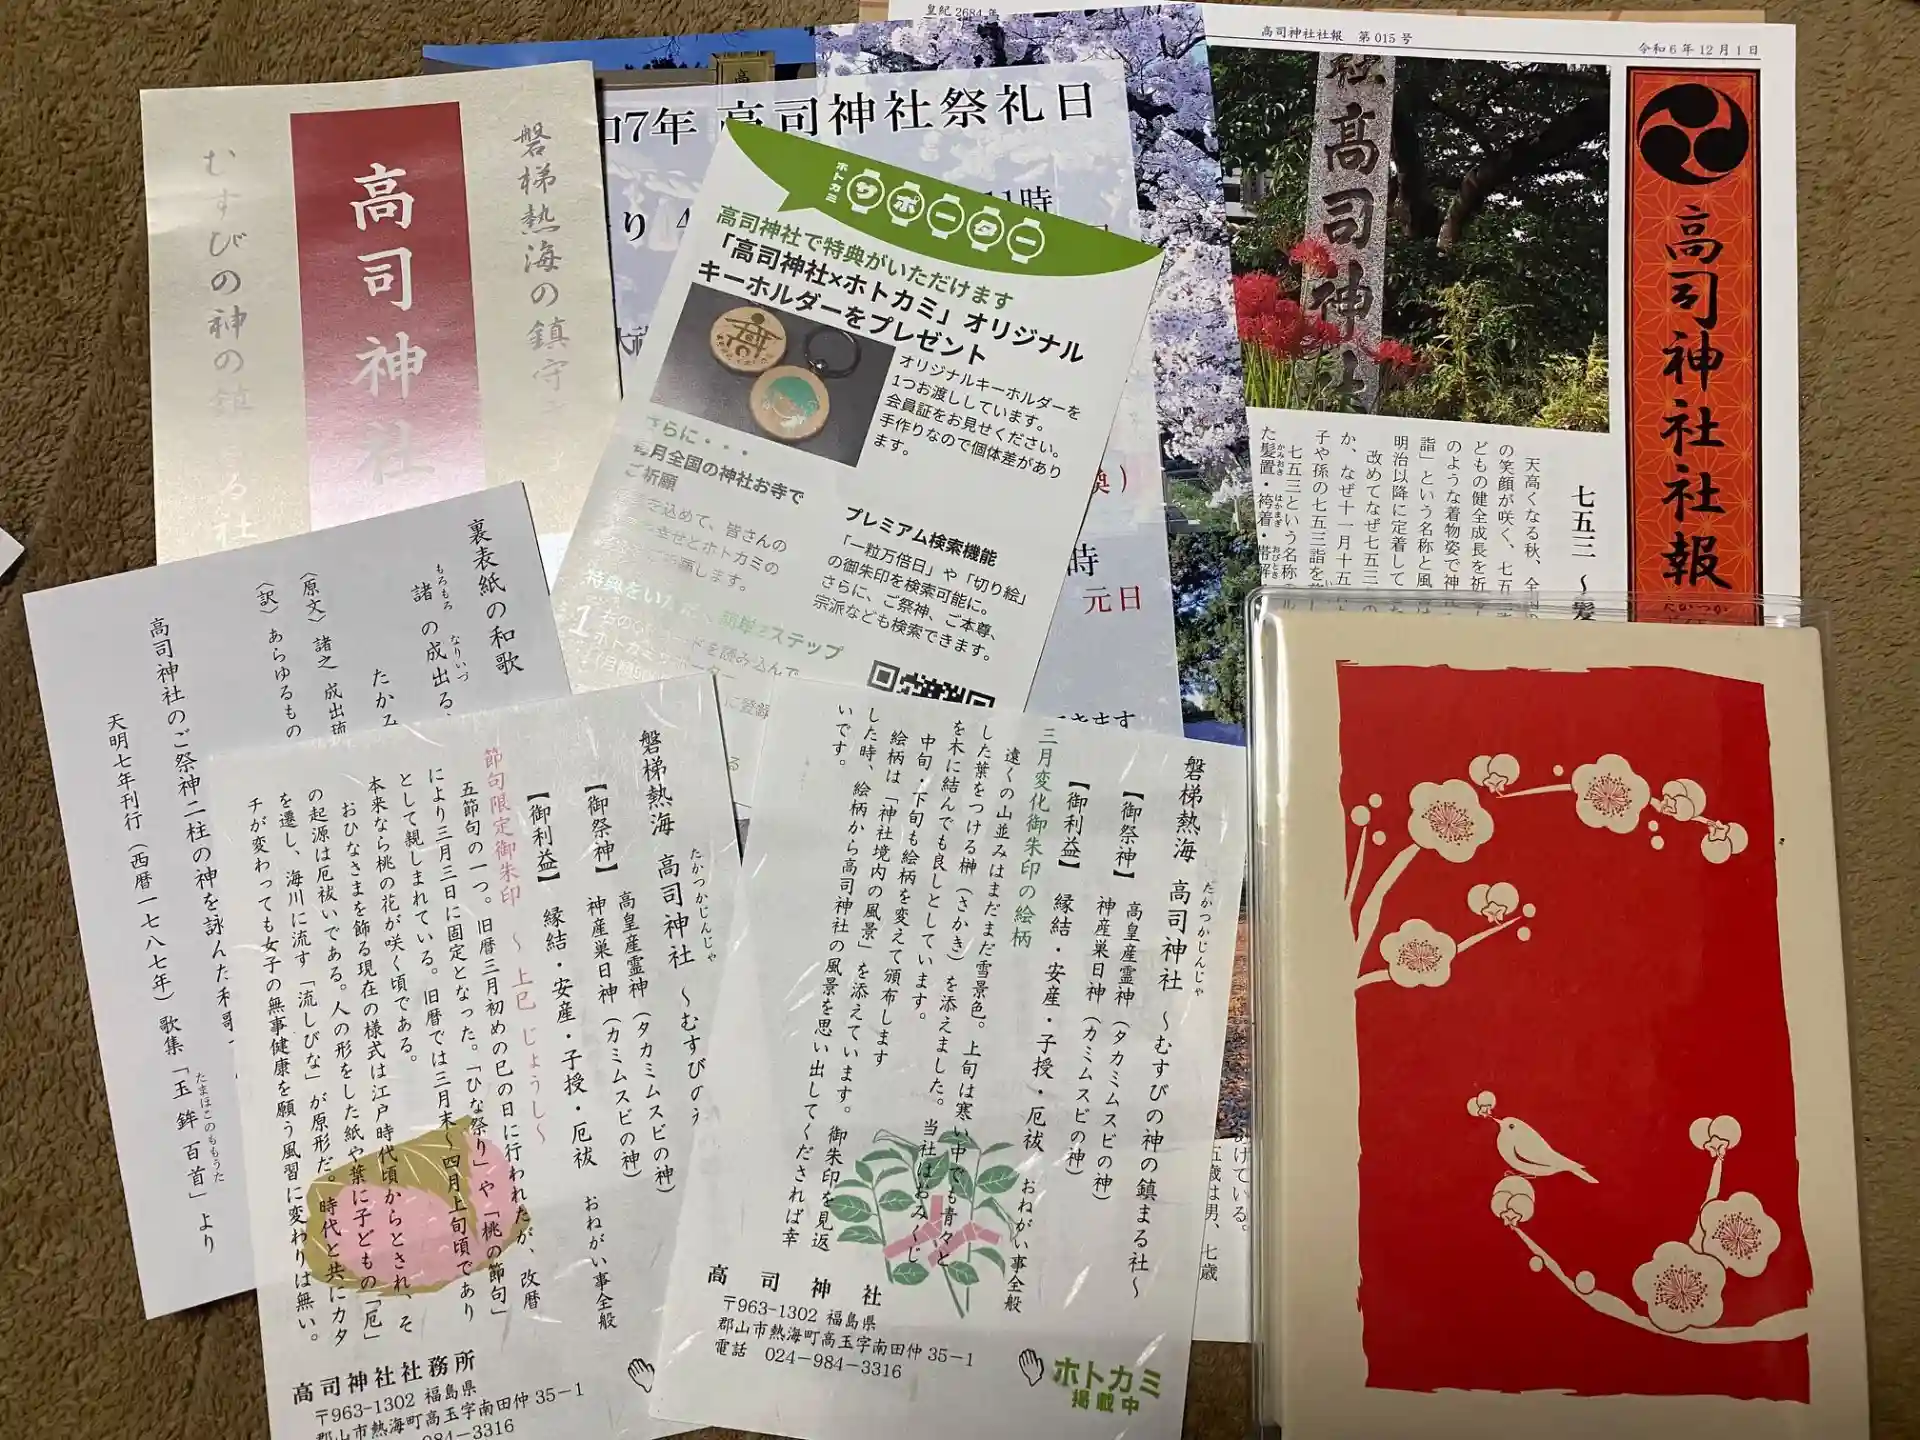 皇紀2684年
高司神社社報 第015号
令和6年12月1日
高司神社社報
たかつか
高司神
七五三 ~髪
天高くなる秋、全国
の笑顔が咲く、七五
どもの健全成長を祈
のような着物姿で神
詣」という名称と風
明治以降に定着して
改めてなぜ七五三の
か、なぜ十一月十五
子や孫の七五三詣を
七五三という名称
た髪置・袴着・帯解
かみおき
はかまぎ
おびとき
けている。
五歳は男、七歳
磐梯熱海の鎮守
高司神社
むすびの神の鎮まる社
7年 高司神社祭礼日
11時
時
元日
ホトカミ
サポーター
高司神社で特典がいただけます
「高司神社×ホトカミ」オリジナル
キーホルダーをプレゼント
オリジナルキーホルダーを
1つお渡ししています。
会員証をお見せください。
手作りなので個体差があり
ます。
さらに・・・
毎月全国の神社お寺で
ご祈願
を込めて、皆さんの
幸せとホトカミの
祈願します。
プレミアム検索機能
「一粒万倍日」や「切り絵」
の御朱印を検索可能に。
さらに、ご祭神、ご本尊、
宗派なども検索できます。
特典をいただく、簡単2ステップ
1
ードを読み込んで
ホトカミサポーター
に登録
裏表紙の和歌
もろもろ なりいづ
諸の成出る、
たかみ
(原文) 諸之 成出
(訳) あらゆるもの
高司神社のご祭神二柱の神を詠んだ和歌
天明七年刊行(西暦一七八七年)歌集「玉鉾百首」より
たまほこのももうた
磐梯熱海 高司神社 ~むすびの
たかつかじんじゃ
【御祭神】 高皇産霊神(タカミムスビの神)
神産巣日神(カミムスビの神)
【御利益】 縁結・安産・子授・厄祓 おねがい事全般
節句限定御朱印 ~上巳 じょうし~
五節句の一つ。旧暦三月初めの巳の日に行われたが、改暦
により三月三日に固定となった。「ひな祭り」や「桃の節句」
として親しまれている。旧暦では三月末~四月上旬頃であり
本来なら桃の花が咲く頃である。
おひなさまを飾る現在の様式は江戸時代頃からとされ、そ
の起源は厄祓いである。人の形をした紙や葉に子どもの「厄」
を遷し、海川に流す「流しびな」が原形だ。時代と共にカタ
チが変わっても女子の無事健康を願う風習に変わりは無い。
高司神社社務所
〒963-1302 福島県
郡山市熱海町高玉字南田仲35-1
984-3316
磐梯熱海 高司神社 ~むすびの神の鎮まる社~
たかつかじんじゃ
【御祭神】 高皇産霊神(タカミムスビの神)
神産巣日神(カミムスビの神)
【御利益】 縁結・安産・子授・厄祓 おねがい事全般
三月変化御朱印の絵柄
遠くの山並みはまだまだ雪景色。上旬は寒い中でも青々と
した葉をつける榊(さかき)を添えました。当社はおみくじ
を木に結んでも良しとしています。
中旬・下旬も絵柄を変えて頒布します
絵柄は「神社境内の風景」を添えています。御朱印を見返
した時、絵柄から高司神社の風景を思い出してくだされば幸
いです。
高司神社
〒963-1302 福島県
郡山市熱海町高玉字南田仲35-1
電話 024-984-3316
ホトカミ
掲載中